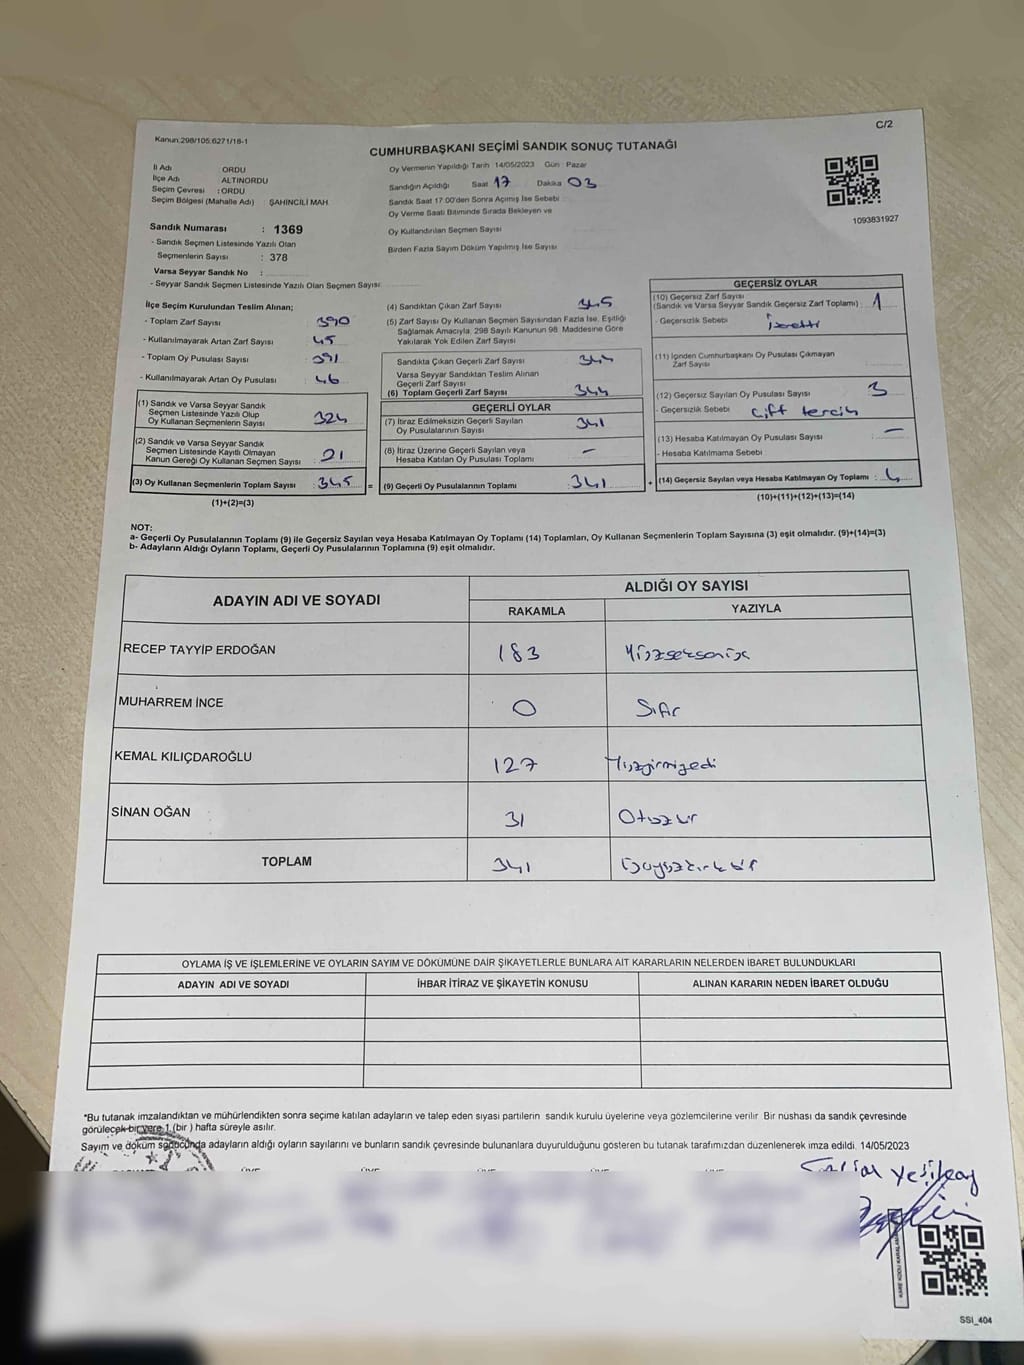 C/2
Kanun:298/105:6271/18-1
CUMHURBAŞKANI SEÇİMİ SANDIK SONUÇ TUTANAĞI
İl Adı ORDU
İlçe Adı ALTINORDU
Seçim Çevresi : ORDU
Seçim Bölgesi (Mahalle Adı) : ŞAHİNCİLİ MAH
Oy Vermenin Yapıldığı Tarih 14/05/2023 Gün : Pazar
Sandığın Açıldığı Saat 17 Dakika 03
Sandık Saat 17:00'den Sonra Açımış İse Sebebi
Oy Verme Saati Bitiminde Sırada Bekleyen ve
Oy Kullandırılan Seçmen Sayısı
Birden Fazla Sayım Döküm Yapılmış İse Sayısı
1093831927
Sandık Numarası : 1369
- Sandık Seçmen Listesinde Yazılı Olan
Seçmenlerin Sayısı : 378
Varsa Seyyar Sandık No :
- Seyyar Sandık Seçmen Listesinde Yazılı Olan Seçmen Sayısı:
İlçe Seçim Kurulundan Teslim Alınan;
- Toplam Zarf Sayısı : 390
- Kullanılmayarak Artan Zarf Sayısı : 45
- Toplam Oy Pusulası Sayısı : 391
- Kullanılmayarak Artan Oy Pusulası : 46
(1) Sandık ve Varsa Seyyar Sandık
Seçmen Listesinde Yazılı Olup
Oy Kullanan Seçmenlerin Sayısı 324
(2) Sandık ve Varsa Seyyar Sandık
Seçmen Listesinde Kayıtlı Olmayan
Kanun Gereği Oy Kullanan Seçmen Sayısı 21
(3) Oy Kullanan Seçmenlerin Toplam Sayısı : 345 =
(1)+(2)=(3)
(4) Sandıktan Çıkan Zarf Sayısı 345
(5) Zarf Sayısı Oy Kullanan Seçmen Sayısından Fazla İse, Eşitliği
Sağlamak Amacıyla, 298 Sayılı Kanunun 98. Maddesine Göre
Yakılarak Yok Edilen Zarf Sayısı
Sandıkta Çıkan Geçerli Zarf Sayısı : 344
Varsa Seyyar Sandıktan Teslim Alınan
Geçerli Zarf Sayısı
(6) Toplam Geçerli Zarf Sayısı : 344
GEÇERLİ OYLAR
(7) İtiraz Edilmeksizin Geçerli Sayılan
Oy Pusulalarının Sayısı : 341
(8) İtiraz Üzerine Geçerli Sayılan veya
Hesaba Katılan Oy Pusulası Toplamı : –
(9) Geçerli Oy Pusulalarının Toplamı : 341 +
GEÇERSİZ OYLAR
(10) Geçersiz Zarf Sayısı
(Sandık ve Varsa Seyyar Sandık Geçersiz Zarf Toplamı) : 1
- Geçersizlik Sebebi : İşaretli
(11) İçinden Cumhurbaşkanı Oy Pusulası Çıkmayan
Zarf Sayısı
(12) Geçersiz Sayılan Oy Pusulası Sayısı : 3
- Geçersizlik Sebebi : Çift tercih
(13) Hesaba Katılmayan Oy Pusulası Sayısı : –
- Hesaba Katılmama Sebebi
(14) Geçersiz Sayılan veya Hesaba Katılmayan Oy Toplamı : 4
(10)+(11)+(12)+(13)=(14)
NOT:
a- Geçerli Oy Pusulalarının Toplamı (9) ile Geçersiz Sayılan veya Hesaba Katılmayan Oy Toplamı (14) Toplamları, Oy Kullanan Seçmenlerin Toplam Sayısına (3) eşit olmalıdır. (9)+(14)=(3)
b- Adayların Aldığı Oyların Toplamı, Geçerli Oy Pusulalarının Toplamına (9) eşit olmalıdır.
ADAYIN ADI VE SOYADI ALDIĞI OY SAYISI
RAKAMLA YAZIYLA
RECEP TAYYİP ERDOĞAN 183 Yüzseksenüç
MUHARREM İNCE 0 Sıfır
KEMAL KILIÇDAROĞLU 127 Yüzyirmiyedi
SİNAN OĞAN 31 Otuzbir
TOPLAM 341 Üçyüzkırkbir
OYLAMA İŞ VE İŞLEMLERİNE VE OYLARIN SAYIM VE DÖKÜMÜNE DAİR ŞİKAYETLERLE BUNLARA AİT KARARLARIN NELERDEN İBARET BULUNDUKLARI
ADAYIN ADI VE SOYADI İHBAR İTİRAZ VE ŞİKAYETİN KONUSU ALINAN KARARIN NEDEN İBARET OLDUĞU
*Bu tutanak imzalandıktan ve mühürlendikten sonra seçime katılan adayların ve talep eden siyasi partilerin sandık kurulu üyelerine veya gözlemcilerine verilir. Bir nüshası da sandık çevresinde
görülecek bir yere 1 (bir ) hafta süreyle asılır.
Sayım ve döküm sonucunda adayların aldığı oyların sayılarını ve bunların sandık çevresinde bulunanlara duyurulduğunu gösteren bu tutanak tarafımızdan düzenlenerek imza edildi. 14/05/2023
ÜYE ÜYE ÜYE ÜYE ÜYE
SSİ_404